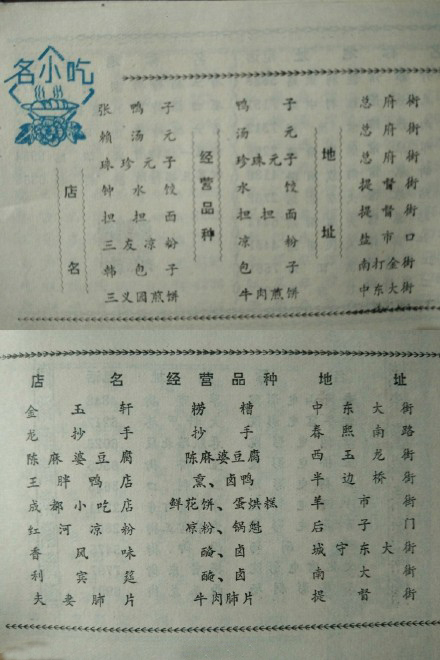 名小吃
店名 经营品种 地址
张鸭子 鸭子 总府街
赖汤元 汤元 总府街
珠珍元子 珍珠元子 总府街
钟水饺 水饺 提督街
担担面 担担面 提督街
三友凉粉 凉粉 盐市口
韩包子 包子 南打金街
三义园煎饼 牛肉煎饼 中东大街
店名 经营品种 地址
金玉轩 捞糟 中东大街
龙抄手 抄手 春熙南路
陈麻婆豆腐 陈麻婆豆腐 西玉龙街
王胖鸭店 熏、卤鸭 半边桥街
成都小吃店 鲜花饼、蛋烘糕 羊市街
红河凉粉 凉粉、锅魁 后子门
香风味 腌、卤 城守东大街
利宾筵 腌、卤 南大街
夫妻肺片 牛肉肺片 提督街